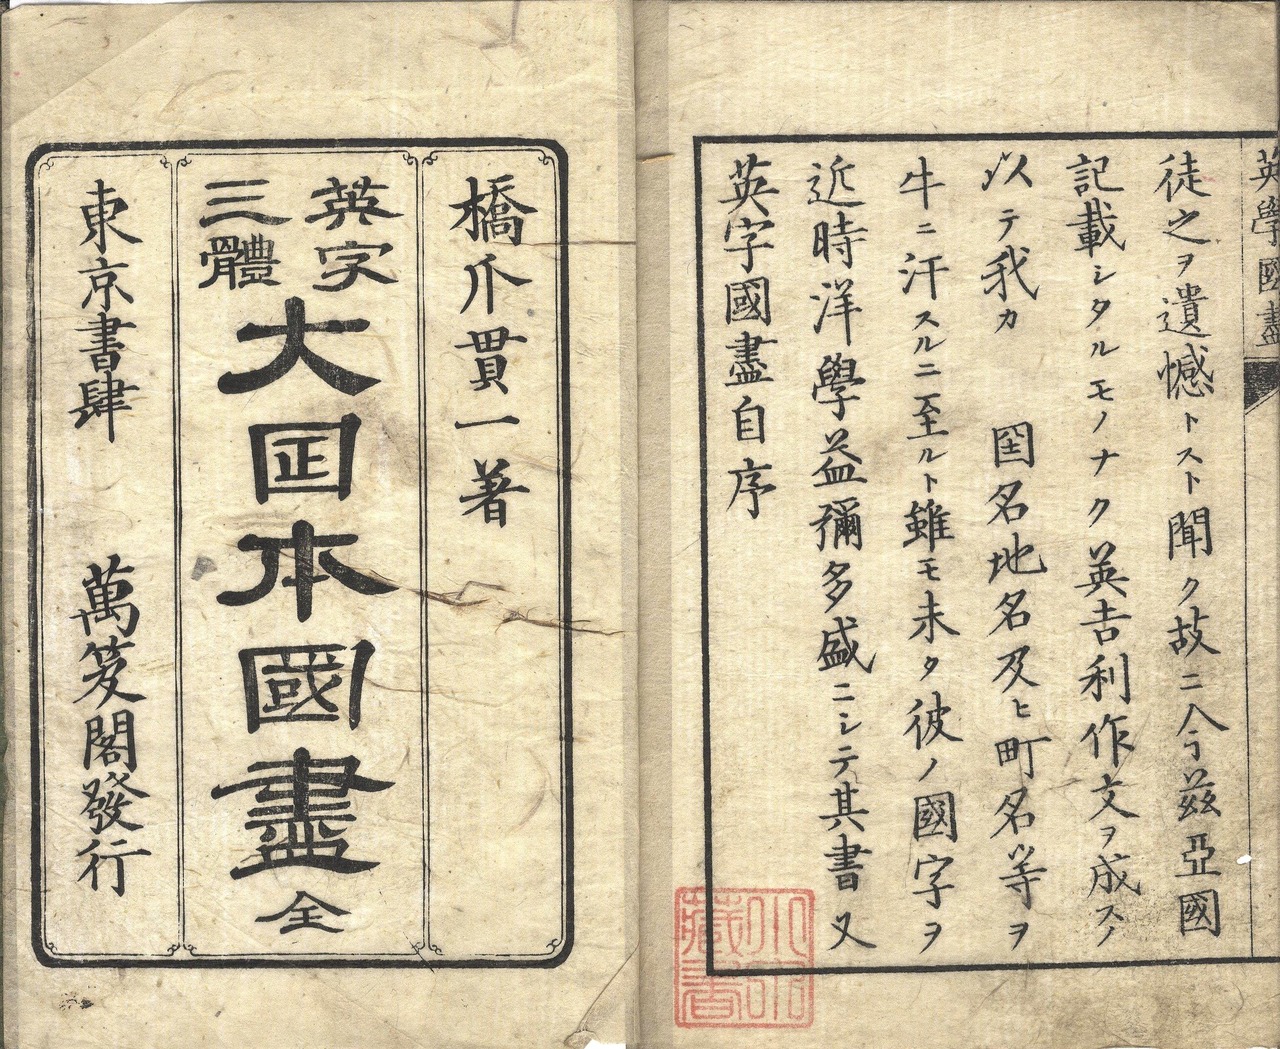 橋爪貫一著
英字
三體
大囸本國盡全
東京書肆 萬笈閣發行
英字國盡自序
近時洋學益彌多盛ニシテ其書又
牛ニ汗スルニ至ルト雖モ未タ彼ノ國字ヲ
以テ我カ 囯名地名及ヒ町名等ヲ
記載シタルモノナク英吉利作文ヲ成スノ
徒之ヲ遺憾トスト聞ク故ニ今茲亞國
英學國盡
藏書